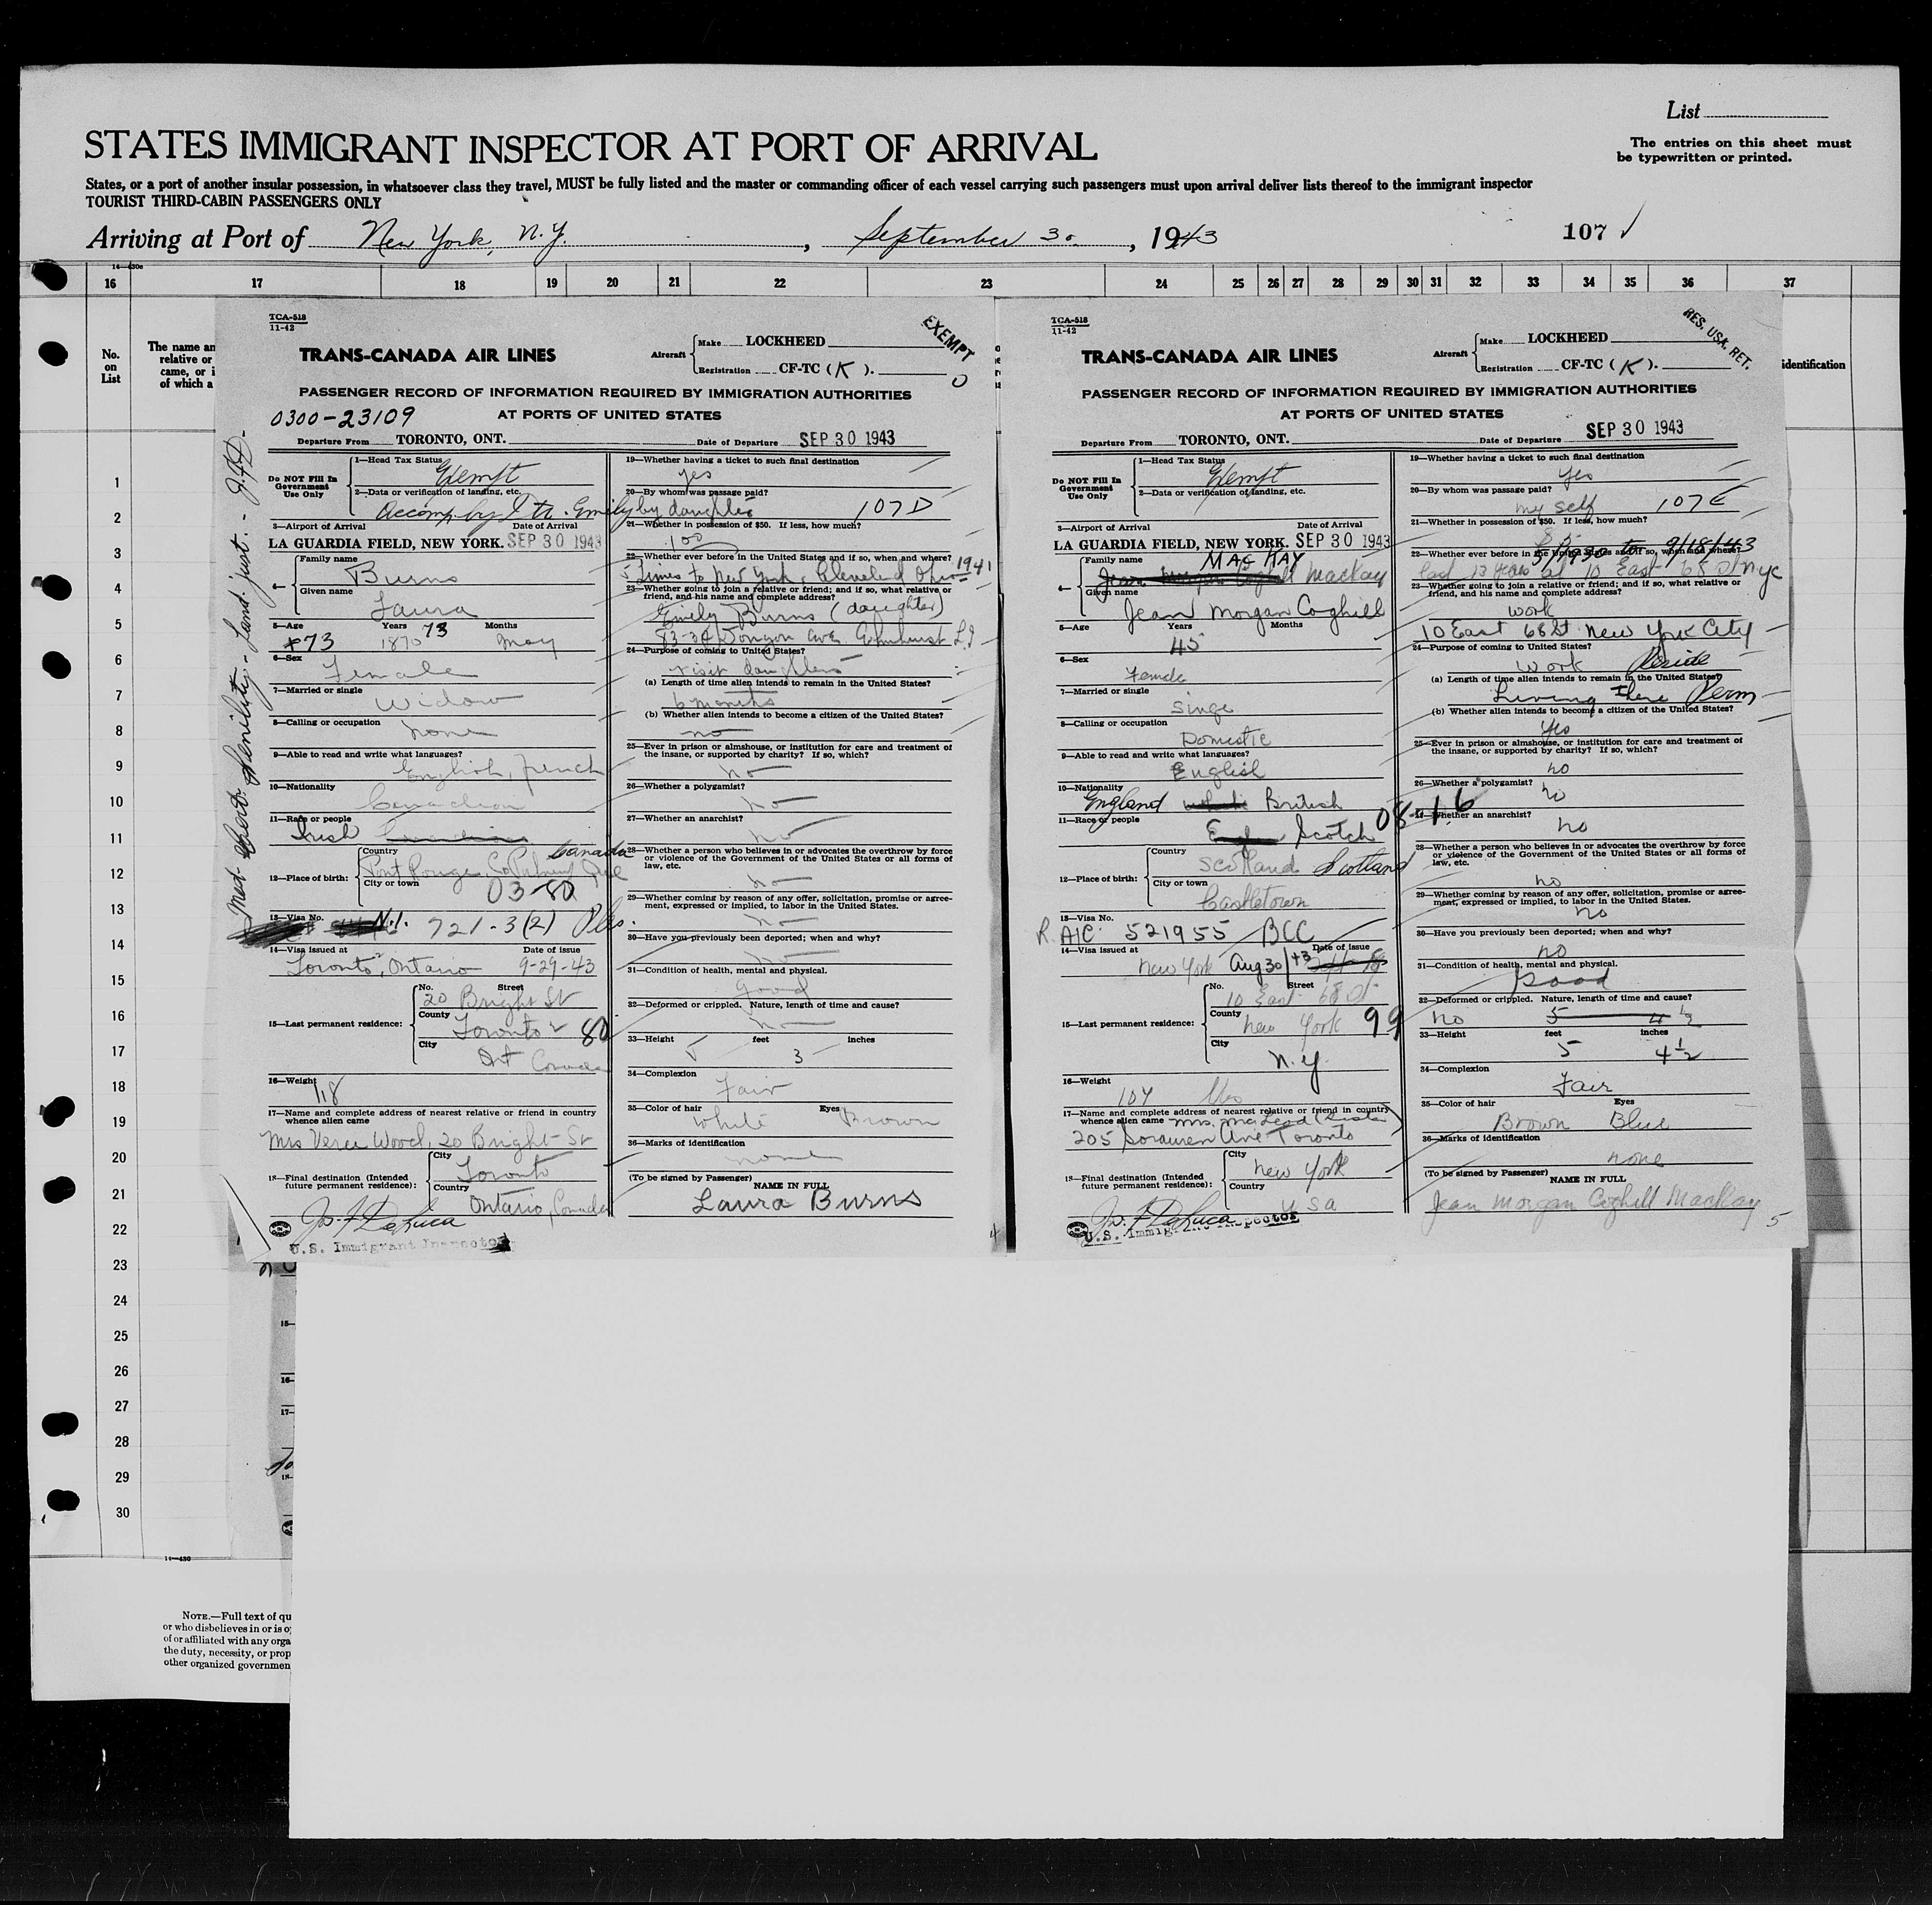 List
STATES IMMIGRANT INSPECTOR AT PORT OF ARRIVAL
The entries on this sheet must
be typewritten or printed.
States, or a port of another insular possession, in whatsoever class they travel, MUST be fully listed and the master or commanding officer of each vessel carrying such passengers must upon arrival deliver lists thereof to the immigrant inspector
TOURIST THIRD-CABIN PASSENGERS ONLY
Arriving at Port of New York, N.Y., September 30, 1943
107
16 17 18 19 20 21 22 23 24 25 26 27 28 29 30 31 32 33 34 35 36 37
No.
on
List
The name an
relative or
came, or i
of which a
identification
1
2
3
4
5
6
7
8
9
10
11
12
13
14
15
16
17
18
19
20
21
22
23
24
25
26
27
28
29
30
TCA-518
11-42
EXEMPT
TRANS-CANADA AIR LINES
Aircraft Make LOCKHEED
Registration CF-TC (K).
PASSENGER RECORD OF INFORMATION REQUIRED BY IMMIGRATION AUTHORITIES
AT PORTS OF UNITED STATES
0300-23109
Departure From TORONTO, ONT. Date of Departure SEP 30 1943
Do NOT Fill In
Government
Use Only
1—Head Tax Status Exempt
2—Data or verification of landing, etc.
Accomp by Dtr. Emily
3—Airport of Arrival Date of Arrival
LA GUARDIA FIELD, NEW YORK. SEP 30 1943
4— Family name Burns
Given name Laura
5—Age Years Months
73 1870 73 May
6—Sex Female
7—Married or single Widow
8—Calling or occupation none
9—Able to read and write what languages?
English, French
10—Nationality Canadian
11—Race or people Irish
12—Place of birth: Country Canada
City or town
03-80
13—Visa No. 721-3(2)
14—Visa issued at Date of issue
Toronto, Ontario 9-29-43
15—Last permanent residence: No. Street
20 Bright St
County Toronto 2 80
City Ont Canada
16—Weight 118
17—Name and complete address of nearest relative or friend in country
whence alien came
Mrs Vera Wood, 20 Bright St
18—Final destination (Intended
future permanent residence): City Toronto
Country Ontario, Canada
Jos. F. DeLuca
U.S. Immigrant Inspector
19—Whether having a ticket to such final destination
yes
20—By whom was passage paid?
by daughter 107D
21—Whether in possession of $50. If less, how much?
100
22—Whether ever before in the United States and if so, when and where? 1941
5 times to New York, Cleveland Ohio
23—Whether going to join a relative or friend; and if so, what relative or
friend, and his name and complete address?
Emily Burns (daughter)
Elmhurst L.I
24—Purpose of coming to United States?
visit daughter
(a) Length of time alien intends to remain in the United States?
6 months
(b) Whether alien intends to become a citizen of the United States?
no
25—Ever in prison or almshouse, or institution for care and treatment of
the insane, or supported by charity? If so, which?
no
26—Whether a polygamist?
no
27—Whether an anarchist?
no
28—Whether a person who believes in or advocates the overthrow by force
or violence of the Government of the United States or all forms of
law, etc.
no
29—Whether coming by reason of any offer, solicitation, promise or agree-
ment, expressed or implied, to labor in the United States.
no
30—Have you previously been deported; when and why?
no
31—Condition of health, mental and physical.
good
32—Deformed or crippled. Nature, length of time and cause?
no
33—Height 5 feet 3 inches
34—Complexion Fair
35—Color of hair White Eyes Brown
36—Marks of identification
none
(To be signed by Passenger) NAME IN FULL
Laura Burns
TCA-518
11-42
RES. USA. RET.
TRANS-CANADA AIR LINES
Aircraft Make LOCKHEED
Registration CF-TC (K).
PASSENGER RECORD OF INFORMATION REQUIRED BY IMMIGRATION AUTHORITIES
AT PORTS OF UNITED STATES
Departure From TORONTO, ONT. Date of Departure SEP 30 1943
Do NOT Fill In
Government
Use Only
1—Head Tax Status Exempt
2—Data or verification of landing, etc.
3—Airport of Arrival Date of Arrival
LA GUARDIA FIELD, NEW YORK. SEP 30 1943
4— Family name MAC KAY
Mackay
Given name Jean Morgan Coghill
5—Age Years Months
45
6—Sex Female
7—Married or single Singe
8—Calling or occupation Domestic
9—Able to read and write what languages?
English
10—Nationality England British
11—Race or people Scotch 08-16
12—Place of birth: Country Scotland Scotland
City or town Castletown
13—Visa No. R. AIC. 521955 BCC
14—Visa issued at Date of issue
New York Aug 30/43
15—Last permanent residence: No. Street
10 East 68 St
County New York 99
City N.Y
16—Weight 104 lbs
17—Name and complete address of nearest relative or friend in country
whence alien came Mrs. McLeod (Sister)
205 Sorauren Ave Toronto
18—Final destination (Intended
future permanent residence): City New York
Country U S A
Jos. F. DeLuca
U.S. Immigrant Inspector
19—Whether having a ticket to such final destination
yes
20—By whom was passage paid?
my self 107E
21—Whether in possession of $50. If less, how much?
22—Whether ever before in the United States and if so, when and where?
3/1930 to 9/18/43
Past 13 years at 10 East 68 St NYC
23—Whether going to join a relative or friend; and if so, what relative or
friend, and his name and complete address?
work
10 East 68 St New York City
24—Purpose of coming to United States?
work Reside
(a) Length of time alien intends to remain in the United States?
Living there Perm
(b) Whether alien intends to become a citizen of the United States?
Yes
25—Ever in prison or almshouse, or institution for care and treatment of
the insane, or supported by charity? If so, which?
no
26—Whether a polygamist?
no
27—Whether an anarchist?
no
28—Whether a person who believes in or advocates the overthrow by force
or violence of the Government of the United States or all forms of
law, etc.
no
29—Whether coming by reason of any offer, solicitation, promise or agree-
ment, expressed or implied, to labor in the United States.
no
30—Have you previously been deported; when and why?
no
31—Condition of health, mental and physical.
Good
32—Deformed or crippled. Nature, length of time and cause?
no
33—Height feet inches
5 4½
34—Complexion
Fair
35—Color of hair Brown Eyes Blue
36—Marks of identification
none
(To be signed by Passenger) NAME IN FULL
Jean Morgan Coghill MacKay
5
NOTE.—Full text of qu
or who disbelieves in or is o
of or affiliated with any orga
the duty, necessity, or prop
other organized governmen